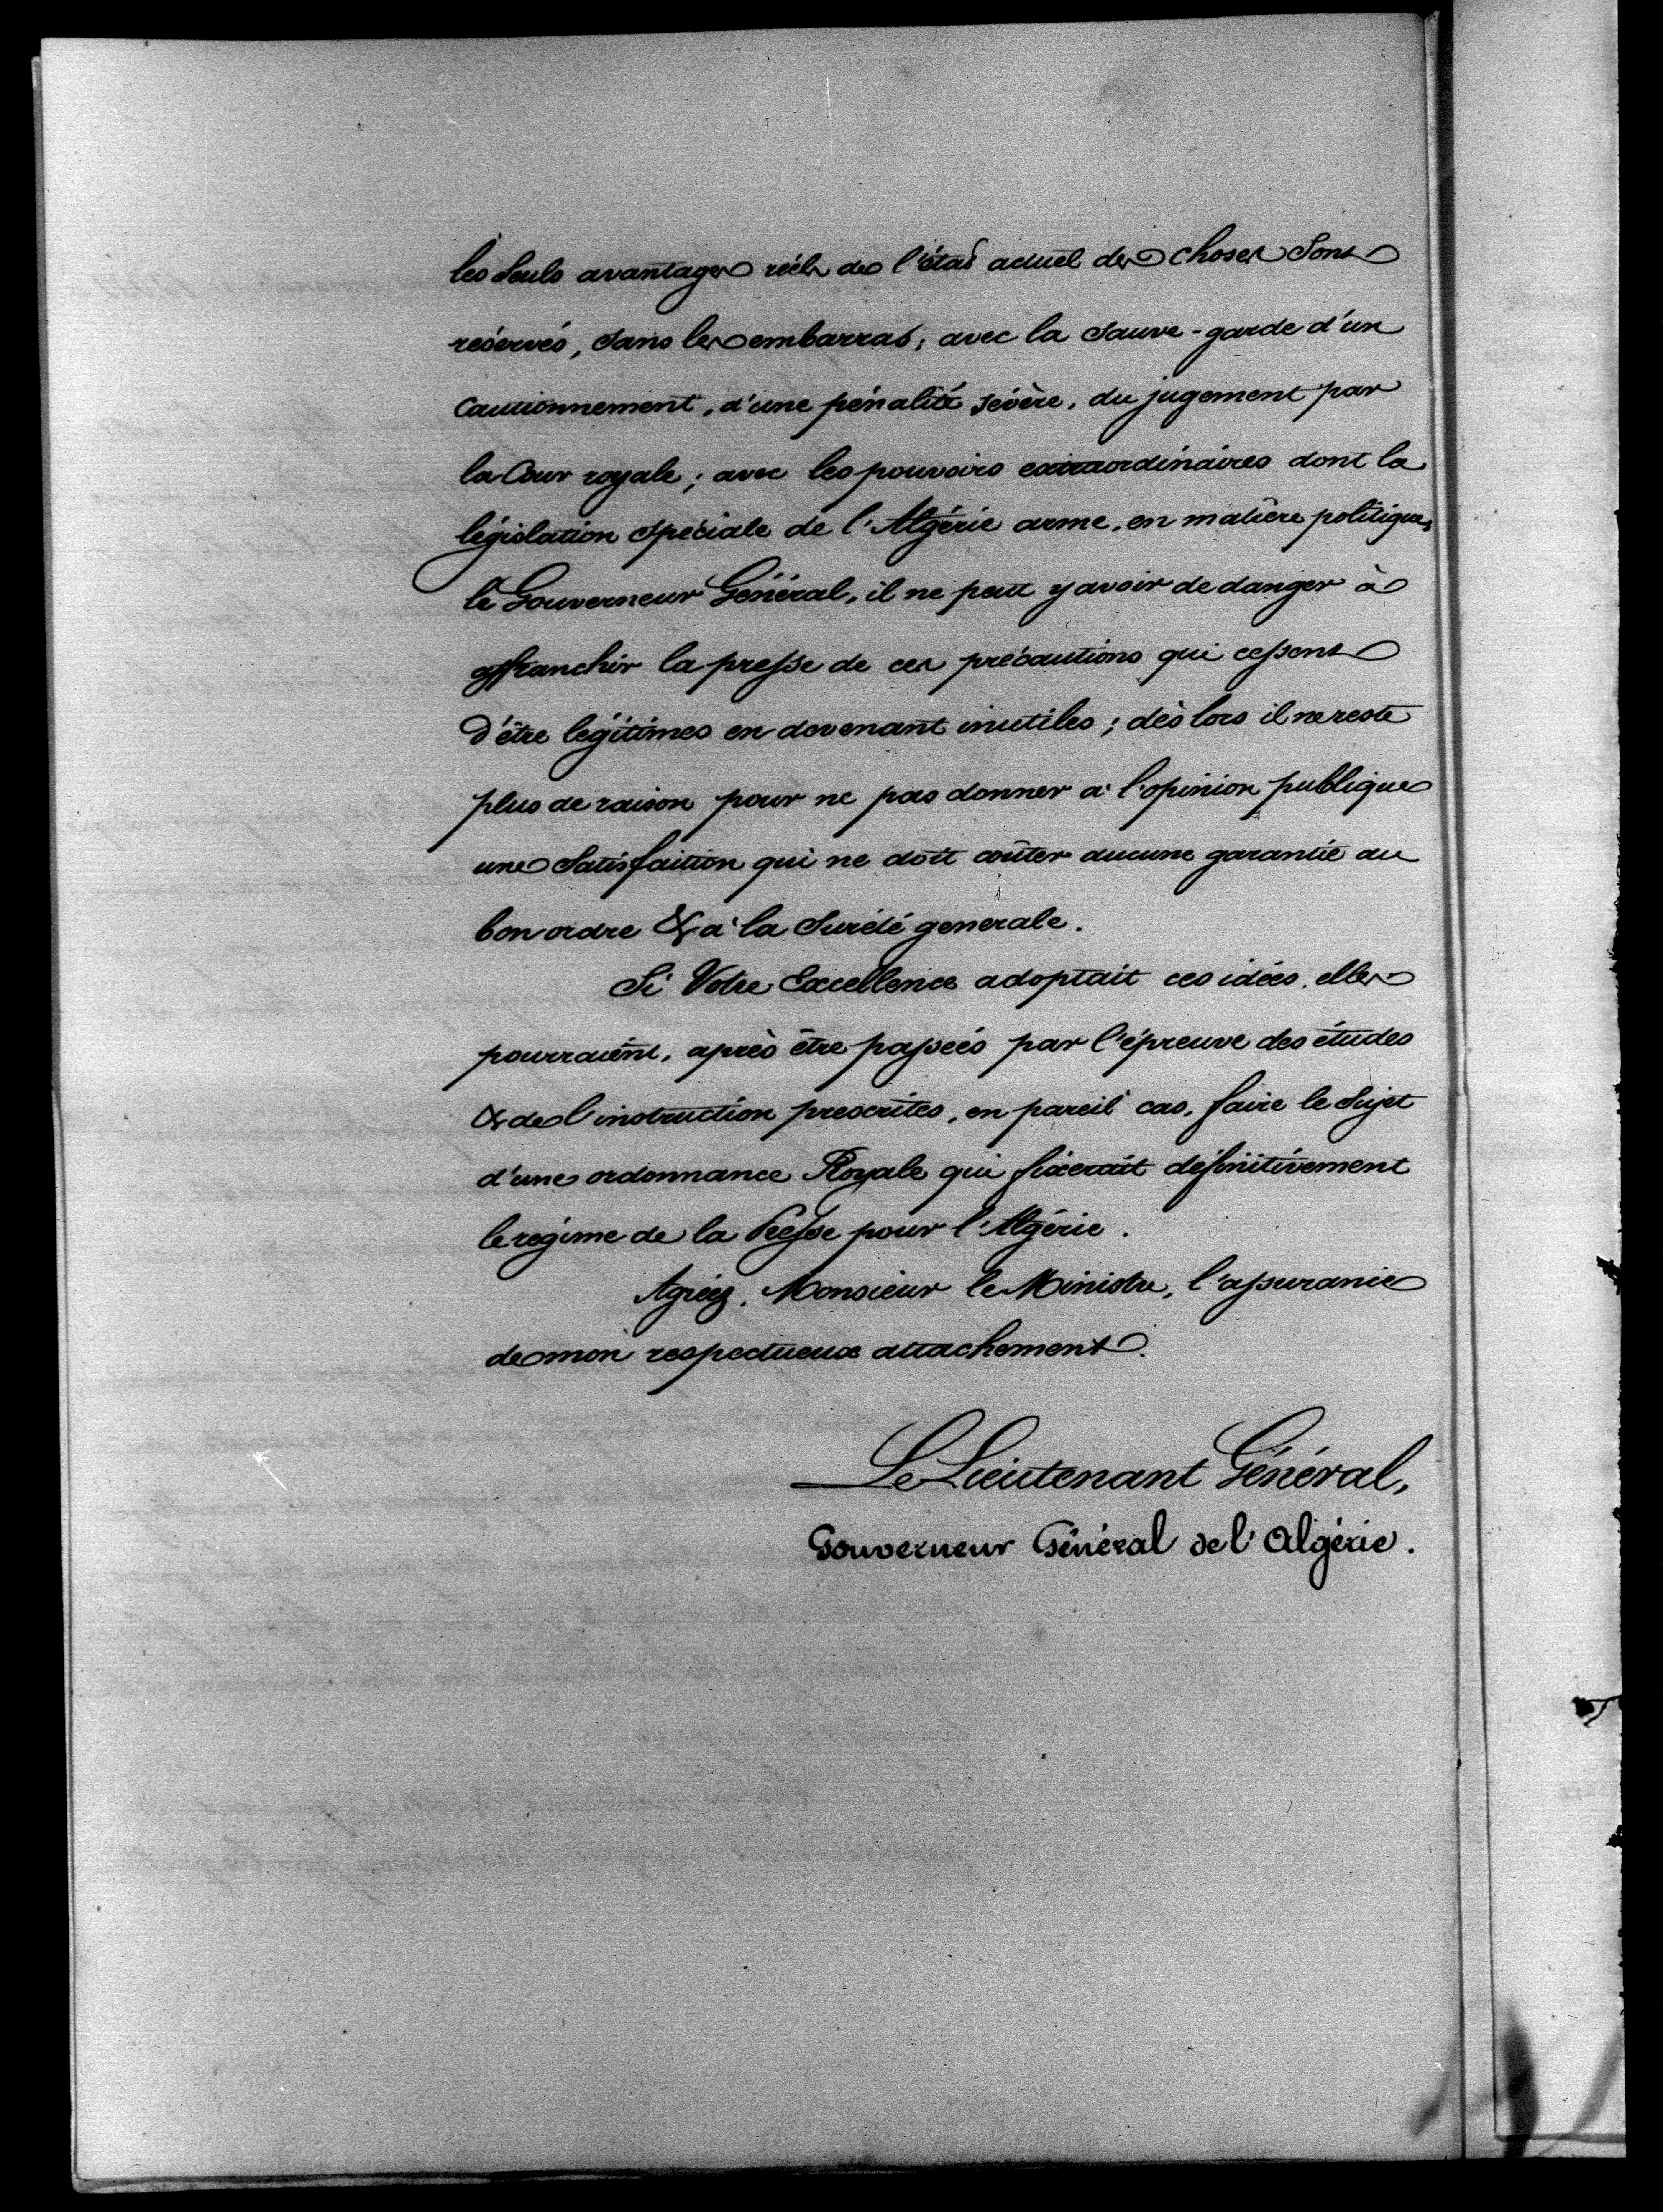 les seuls avantages réels de l'état actuel des choses sont
réservés, sans les embarras; avec la sauve-garde d'un
cautionnement, d'une pénalité sévère, du jugement par
la Cour royale; avec les pouvoirs extraordinaires dont la
législation spéciale de l'Algérie arme, en matière politique,
le Gouverneur Général, il ne peut y avoir de danger à
affranchir la presse de ces précautions qui cessent
d'être légitimes en devenant inutiles; dès lors il ne reste
plus de raison pour ne pas donner à l'opinion publique
une satisfaition qui ne doit coûter aucune garantie au
bon ordre & à la sureté generale.
Si Votre Excellence adoptait ces idées, elles
pourraient, après être passées par l'épreuve des études
& de l'instruction prescrites, en pareil cas, faire le sujet
d'une ordonnance Royale qui fixerait définitivement
le régime de la Presse pour l'Algérie.
Agréez, Monsieur le Ministre, l'assurance
de mon respectueux attachement.
Le Lieutenant Général,
Gouverneur Général de l'Algérie.